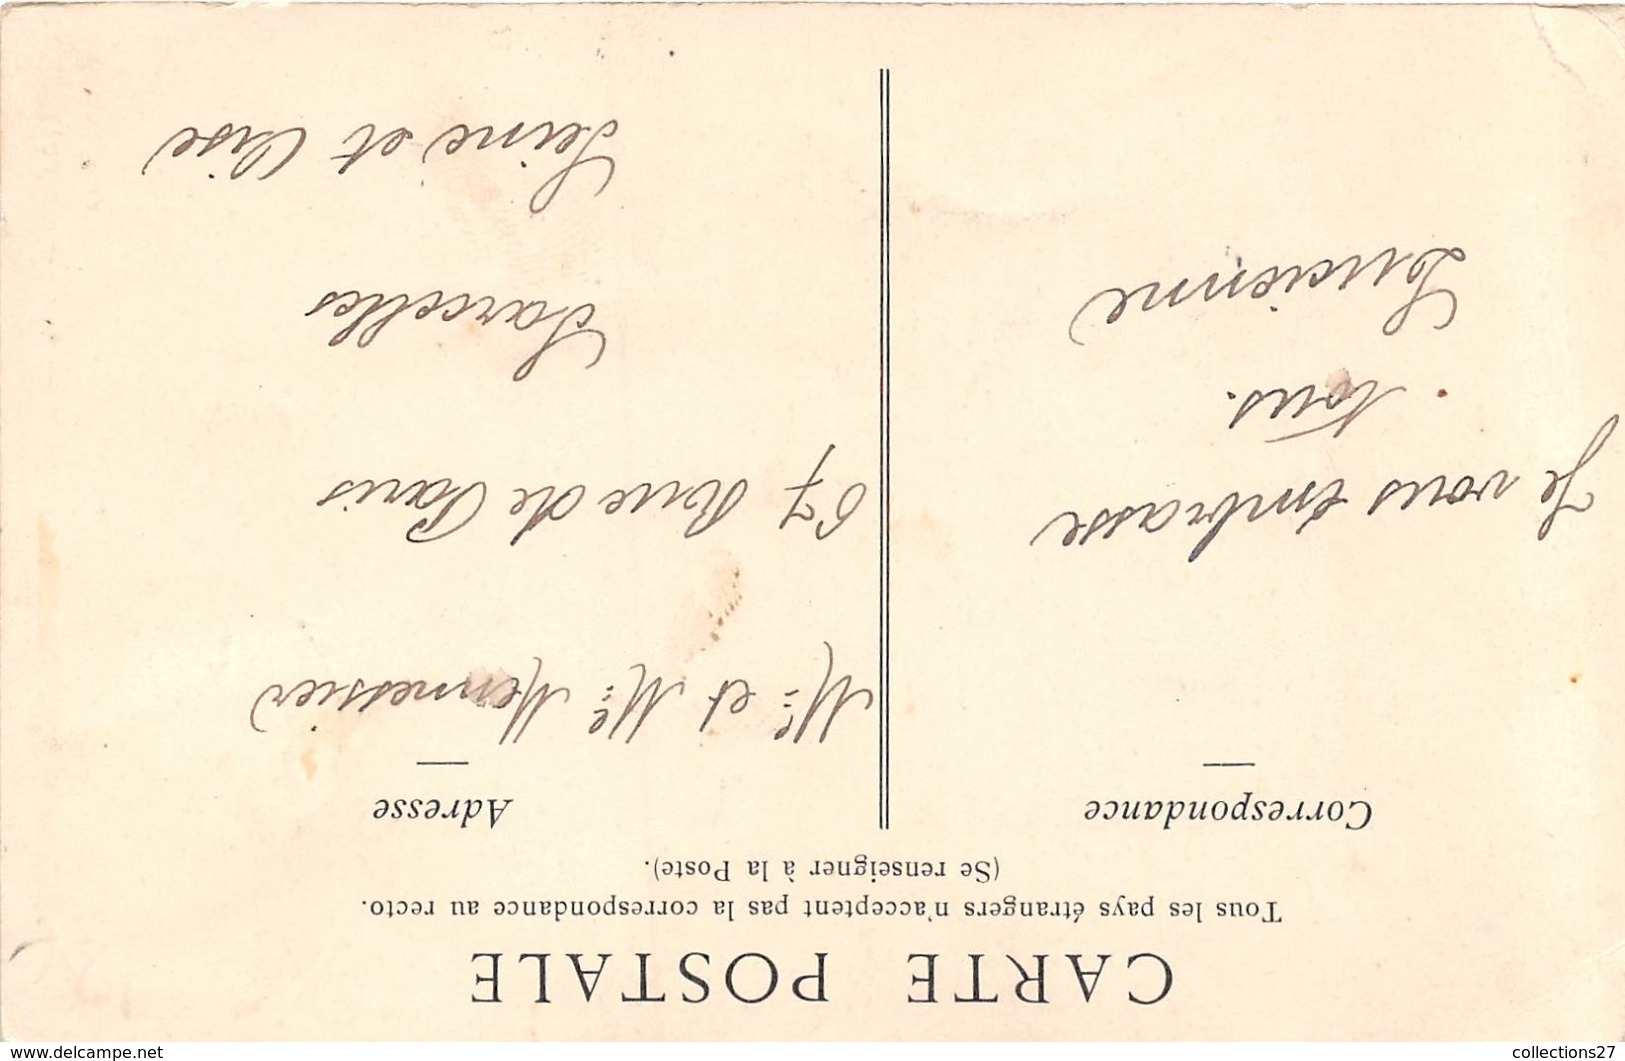 CARTE POSTALE
Tous les pays étrangers n'acceptent pas la correspondance au recto.
(Se renseigner à la Poste).
Correspondance
Je vous embrasse
tous.
Lucienne
Adresse
Mr et Me Mennessier
67 Rue de Paris
Sarcelles
Seine et Oise
www.delcampe.net
collections27